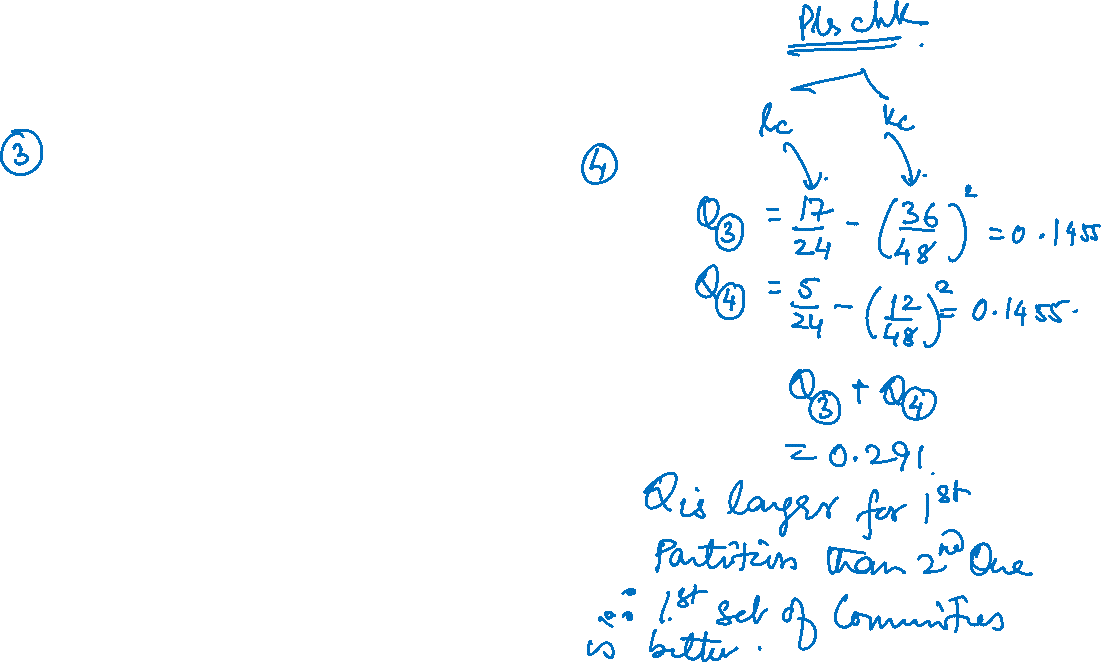 Pls chk.
lc kc
③ ④
Q③ = 17/24 - (36/48)² = 0.1455
Q④ = 5/24 - (12/48)² = 0.1455.
Q③ + Q④
= 0.291.
Q is larger for 1st
Partition than 2nd One
∴ 1st set of Communities
is better.